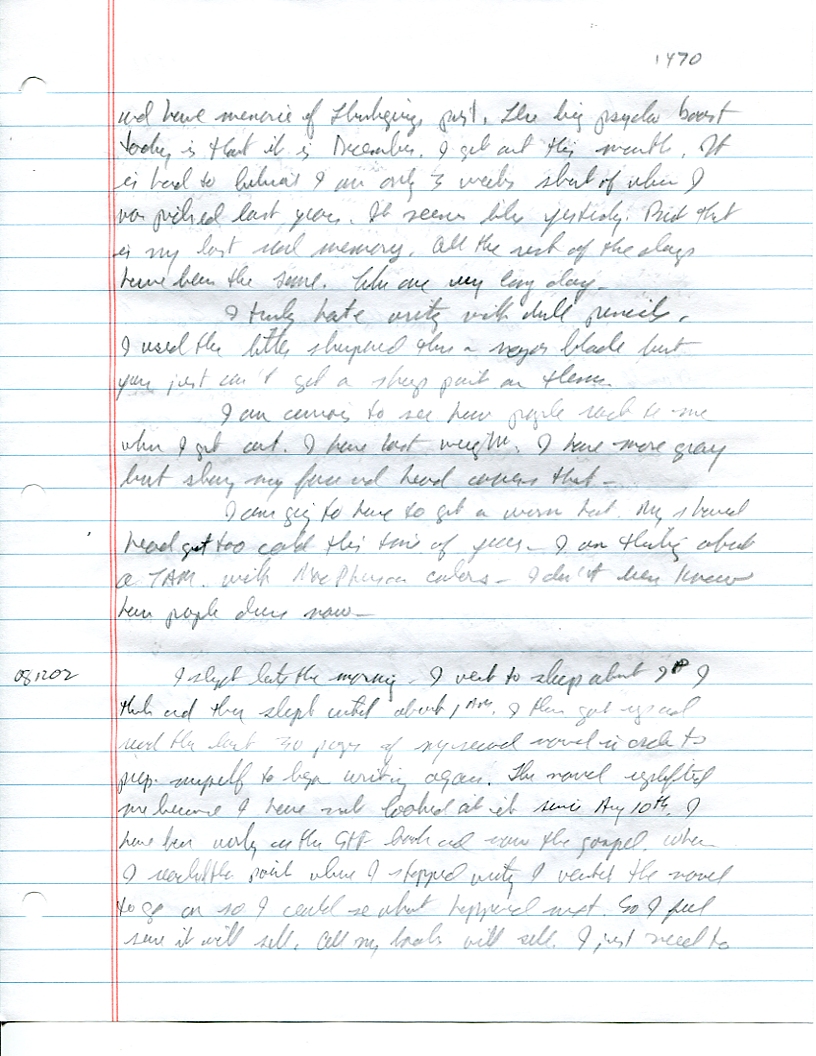 1470
and have memories of Thanksgivings past. The big psycho boost
today is that it is December. I get out this month. It
is hard to believe I am only 3 weeks short of when I
was picked last year. It seems like yesterday. But that
is my last real memory. All the rest of the days
have been the same. Like one very long day -
I truly hate writing with dull pencils.
I used the little sharpened thin razor blade but
you just can't get a sharp point on them.
I am curious to see how people react to me
when I get out. I have lost weight. I have more gray
but shaving my face and head covers that -
I am going to have to get a warm hat. My shaved
head get too cold this time of year - I am thinking about
a TAM. with MacPherson colors - I don't even know
how people dress now -
081202
I slept late this morning. I went to sleep about 9 PM I
think and then slept until about 1 AM. I then got up and
read the last 30 pages of my second novel in order to
prep myself to begin writing again. The novel uplifted
me because I have not looked at it since Aug 10th. I
have been working on the book and now the gospel. When
I reached the point where I stopped writing I wanted the novel
to go on so I could see what happened next. So I feel
sure it will sell. All my books will sell. I just need to